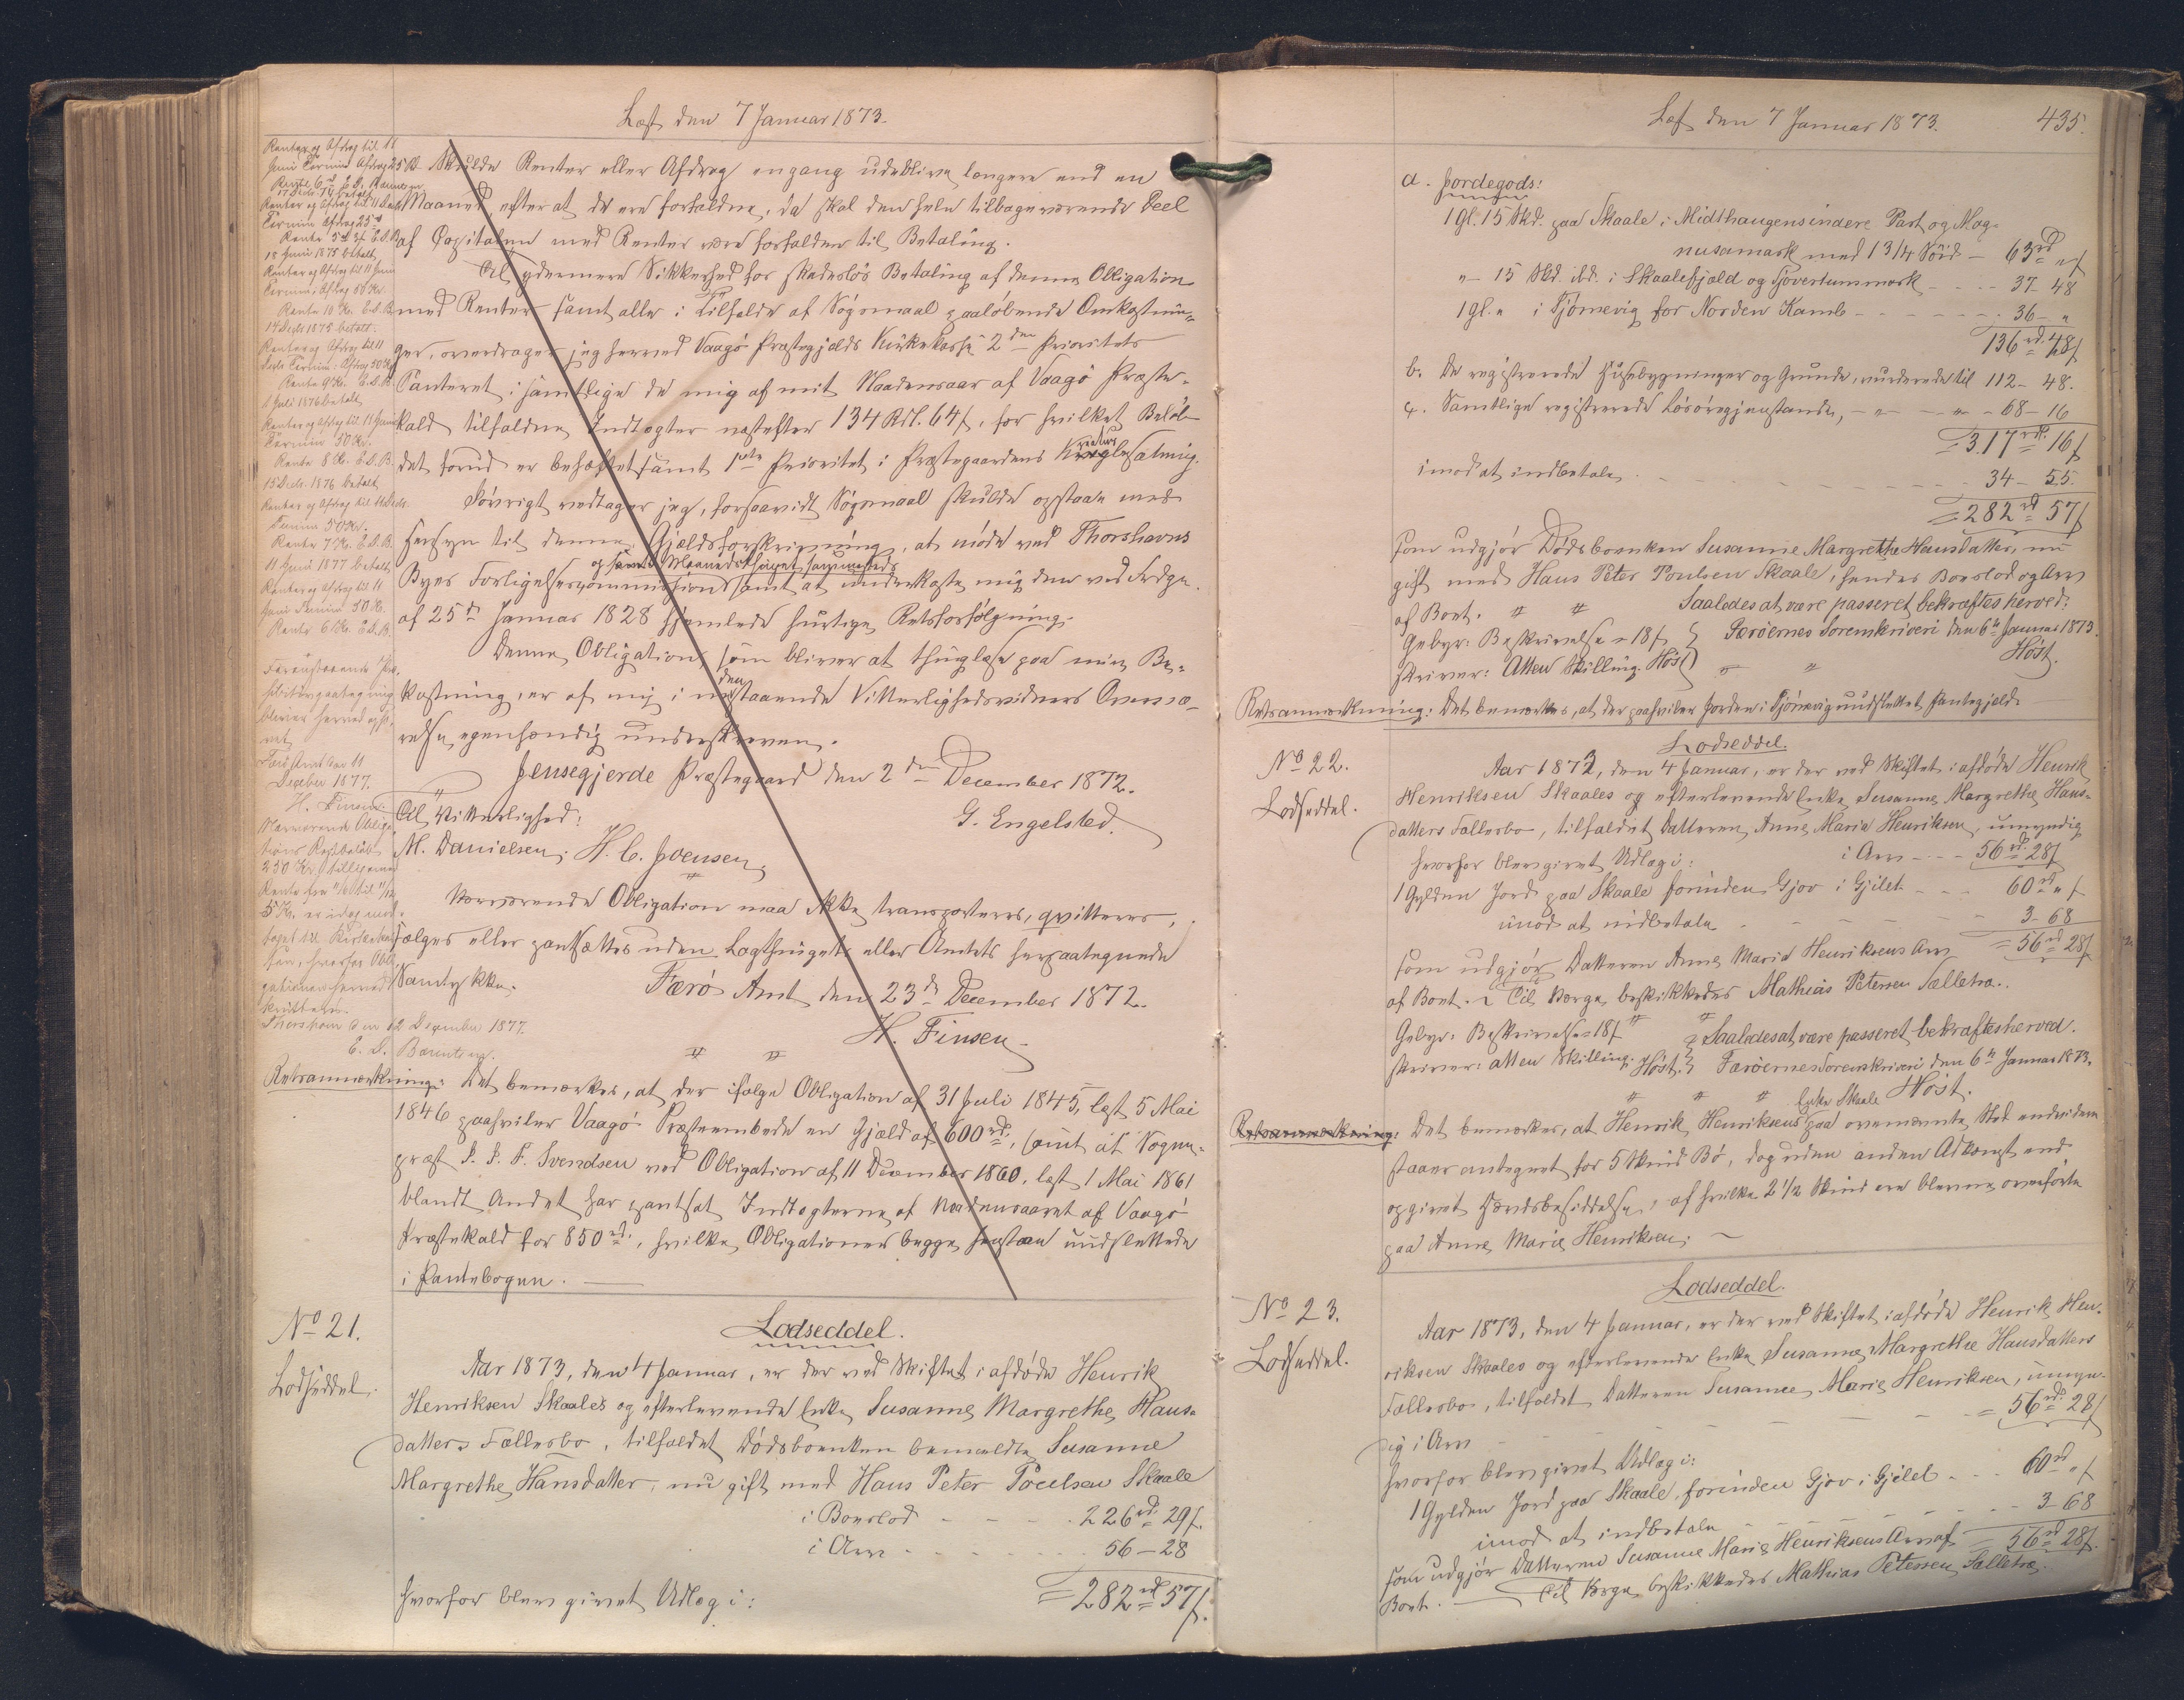 Læst den 7 Januar 1873.
Renter og Afdrag til 11
Juni Termin Afdrag 25 Rd
Rente 6 rd E. S. Bærentsen
17 Decbr. 74 betalt
Renter og Afdrag til 11 Decbr
Termin Afdrag 25 rd
Rente 5 rd E. S. B.
18 Juni 1875 betalt
Renter og Afdrag til 11 Juni
Termin: Afdrag 50 Kr.
Rente 10 Kr. E. S. B.
14 Decbr 1875 betalt.
Renter og Afdrag til 11
Decbr Termin: Afdrag 50 Kr
Rente 9 Kr. E. S. B.
1 Juli 1876 betalt
Renter og Afdrag til 11 Juni
Termin 50 Kr.
Rente 8 Kr. E. S. B.
15 Decbr. 1876 betalt
Renter og Afdrag til 11 Decbr.
Termin 50 Kr.
Rente 7 Kr. E. S. B.
11 Juni 1877 betalt
Renter og Afdrag til 11
Juni Termin 50 Kr.
Rente 6 Kr. E. S. B.
Foranstaaende
paategning
bliver herved
vet
Færø Amt den 11
December 1877.
H. Finsen.
Nærværende Obliga-
tions Restbeløb
250 Kr. tilligemed
Rente fra 11/6 til 11/12
5 Kr. er idag
til Kirkekas-
sen, hvorfor Obli-
gationen herved
kvitteres.
Thorshavn den 12 December 1877.
E. S. Bærentsen.
Skulde Renter eller Afdrag engang udeblive længere end en
Maaned, efterat de ere forfaldne, da skal den hele tilbageværende Deel
af Capitalen med Renter være forfalden til Betaling.
Til ydermere Sikkerhed for skadesløs Betaling af denne Obligation
med Renter samt alle i Tilfælde af Søgsmaal paaløbende Omkostnin-
ger, overdrager jeg herved Vaagø Præstegjelds Kirkekasse 2den Prioritets
Panteret i samtlige de mig af mit Naadensaar af Vaagø Præste-
kald tilfaldne Indtægter næstefter 134 Rdl. 64 s, for hvilket Beløb
det forud er behæftet samt 1ste Prioritet i Præstegaardens Besætning.
Iøvrigt vedtager jeg, forsaavidt Søgsmaal skulde opstaae med
Hensyn til denne Gjældsforskrivning, at møde ved Thorshavns
Byes Forligelsescommission samt at underkaste mig den ved Frdgn.
af 25de Januar 1828 hjemlede hurtige Retsforfølgning.
Denne Obligation, som bliver at thinglæse paa min Be-
kostning, er af mig i nedenstaaende Vitterlighedsvidners Overvæ-
relse egenhændig underskreven.
Jensegjerde Præstegaard den 2den December 1872.
Til Vitterlighed:
G. Engelsted.
M. Danielsen; H. C. Joensen,
Nærværende Obligation maa ikke transporteres, qvitteres,
sælges eller pantsættes uden Lagthingets eller Amtets herpaategnede
Samtykke.
Færø Amt den 23de December 1872.
H. Finsen
Retsanmærkning: Det bemærkes, at der ifølge Obligation af 31 Juli 1845, læst 5 Mai
1846 paahviler Vaagø Præsteembede en Gjæld af 600 rd., samt at Sogne-
præst P. P. F. Svendsen ved Obligation af 11 December 1860, læst 1 Mai 1861
blandt Andet har pantsat Indtægterne af Naadensaaret af Vaagø
Præstekald for 850 rd., hvilke Obligationer begge henstaae uudslettede
i Pantebogen.
No 21.
Lodseddel.
Lodseddel.
Aar 1873, den 4 Januar, er der ved Skiftet i afdøde Henrik
Henriksen Skaales og efterlevende Enke Susanne Margrethe Hans-
datters Fællesbo, tilfaldet Dødsboenken bemeldte Susanne
Margrethe Hansdatter, nu gift med Hans Peter Poulsen Skaale
i Boeslod - - - 226 rd. 29 s.
i Arv - - - 56 — 28
hvorfor blev givet Udlæg i: = 282 rd 57 s.
Læst den 7 Januar 1873.
435.
a. Jordegods:
1 gl. 15 Skd. paa Skaale i Midthaugens indere Part og Mag-
nusamark med 1 3/4 — 63 rd „ s
„ - 15 Skd. ibd. i Skaalefjeld og - - - 37 - 48
1 gl. „ i Tjörnevig for Norden Kamb - - - 36 - „
136 rd. 48 s
b. De registrerede Husebygninger og Grunde, vurderede til 112 - 48.
c. Samtlige registrerede Løsøregjenstande, - „ - „ - 68 - 16
= 317 rdl. 16 s
imod at indbetale - - - 34 - 55.
= 282 rd 57 s
som udgjør Dødsboenken Susanne Margrethe Hansdatter, nu
gift med Hans Peter Poulsen Skaale, hendes Boeslod og Arv
af Boet. „ „ Saaledes at være passeret bekræftes herved:
Gebyr: Beskrivelse = 18 s } Færöernes Sorenskriveri den 6te Januar 1873.
skriver: Atten Skilling. Höst } „ „ Höst.
Retsanmærkning: Det bemærkes, at der paahviler Jorden i Tjörnevig uudslettet Pantegjeld.
No 22.
Lodseddel.
Lodseddel.
Aar 1873, den 4 Januar, er der ved Skiftet i afdøde Henrik
Henriksen Skaales og efterlevende Enke Susanne Margrethe Hans-
datters Fællesbo, tilfaldet Datteren Anne Marie Henriksen, umyndig
i Arv - - - 56 rd. 28 s
hvorfor blev givet Udlæg i:
1 Gylden Jord paa Skaale forinden Gjov i Gjilet - - - 60 rd „ s
imod at indbetale - - - 3 - 68
som udgjør Datteren Anne Marie Henriksens Arv = 56 rd 28 s
af Boet. Til Værge beskikkedes Mathias Petersen Selletræ.
Gebyr: Beskrivelse = 18 s „ „ } Saaledes at være passeret bekræftes herved.
skriver: atten Skilling. Höst. } Færöernes Sorenskriveri den 6te Januar 1873.
„ „ „ Höst.
Retsanmærkning: Det bemærkes, at Henrik Henriksen paa ovennævnte Sted endvidere
staaer antegnet for 5 Skind Bö, dog uden anden Adkomst end
opgivet Hævdsbesiddelse, af hvilke 2 1/2 Skind ere blevne overførte
paa Anne Marie Henriksen.
No 23.
Lodseddel.
Lodseddel.
Aar 1873, den 4 Januar, er der ved Skiftet i afdøde Henrik Hen-
riksen Skaales og efterlevende Enke Susanne Margrethe Hansdatters
Fællesbo, tilfaldet Datteren Susanne Marie Henriksen, umyn-
dig i Arv - - - = 56 rd. 28 s
hvorfor blev givet Udlæg i:
1 Gylden Jord paa Skaale, forinden Gjov i Gjilet - - - 60 rd „ s
imod at indbetale - - - 3 - 68
som udgjør Datteren Susanne Marie Henriksens Arv af = 56 rd 28 s.
Boet. — Til Værge beskikkedes Mathias Petersen Selletræ.